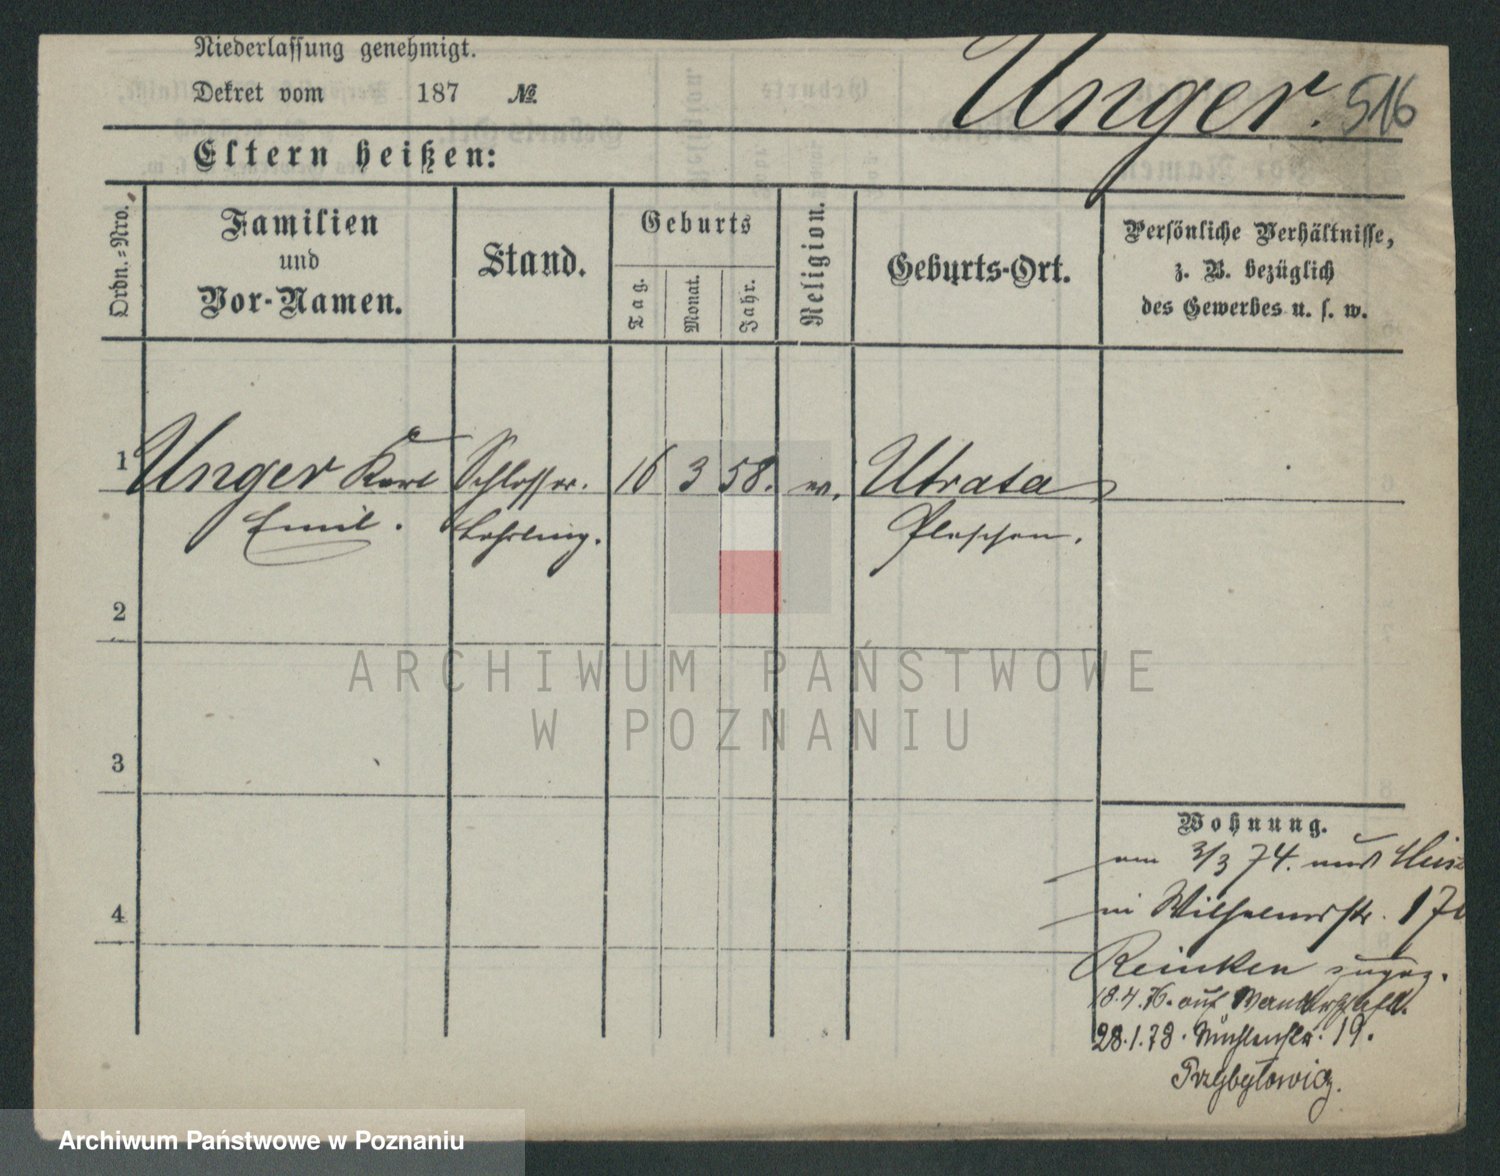 Niederlassung genehmigt.
Dekret vom 187 №
Unger. 516
Eltern heißen:
Ordn.-Nro.
Familien
und
Vor-Namen.
Stand.
Geburts
Tag.
Monat.
Jahr.
Religion.
Geburts-Ort.
Persönliche Verhältnisse,
z. B. bezüglich
des Gewerbes u. s. w.
1 Unger Karl Schlosser. 16 3 58. ev. Utrata
Emil. Lehrling. Pleschen.
2
3
4
Wohnung.
am 3/3 74. nach
in Wilhelmsstr. 17
Reinken zugez.
18.4.76. auf Wanderschaft.
28.1.78. Mühlenstr. 19.
Przybylowicz.
ARCHIWUM PAŃSTWOWE
W POZNANIU
Archiwum Państwowe w Poznaniu